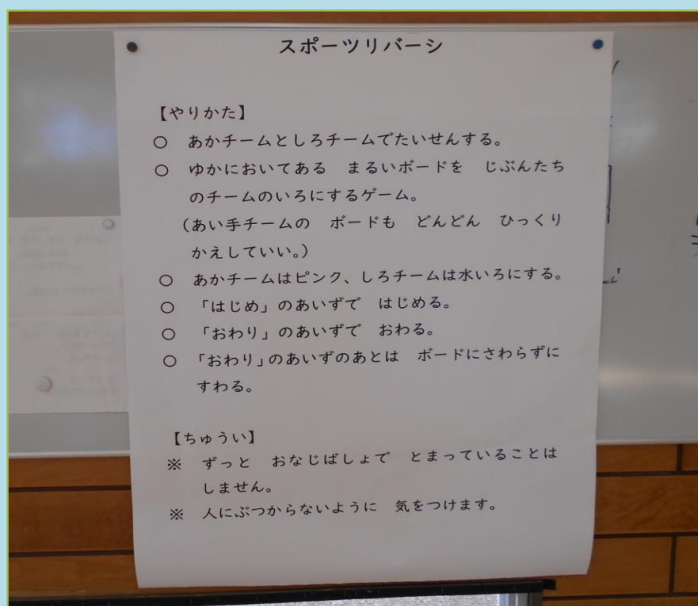 スポーツリバーシ
【やりかた】
○ あかチームとしろチームでたいせんする。
○ ゆかにおいてある まるいボードを じぶんたち
のチームのいろにするゲーム。
(あい手チームの ボードも どんどん ひっくり
かえしていい。)
○ あかチームはピンク、しろチームは水いろにする。
○ 「はじめ」のあいずで はじめる。
○ 「おわり」のあいずで おわる。
○ 「おわり」のあいずのあとは ボードにさわらずに
すわる。
【ちゅうい】
※ ずっと おなじばしょで とまっていることは
しません。
※ 人にぶつからないように 気をつけます。